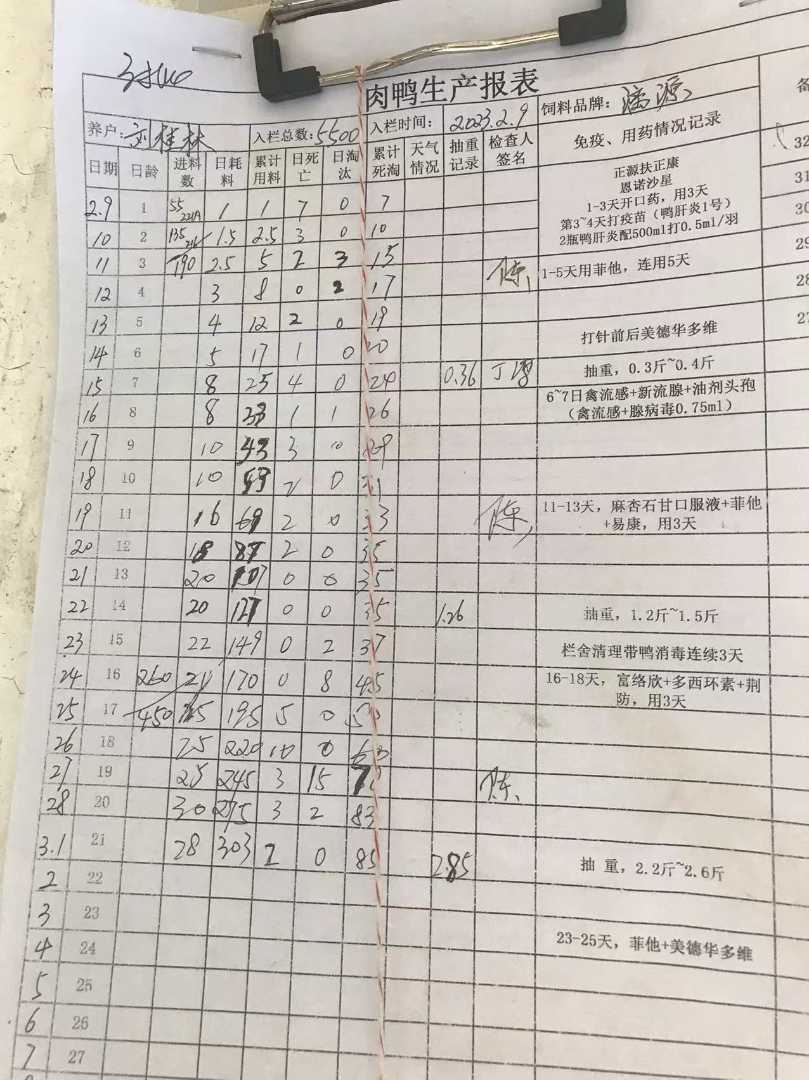 肉鸭生产报表
养户: 刘桂林 入栏总数: 5500 入栏时间: 2023.2.9 饲料品牌: 源 备
日期 日龄 进料数 日耗料 累计用料 日死亡 日淘汰 累计死淘 天气情况 抽重记录 检查人签名 免疫、用药情况记录
正源扶正康
恩诺沙星
1-3天开口药，用3天
第3~4天打疫苗（鸭肝炎1号）
2瓶鸭肝炎配500ml打0.5ml/羽
2.9 1 55 1 1 7 0 7 32
10 2 135 1.5 2.5 3 0 10 31
11 3 190 2.5 5 2 3 15 陈 1-5天用菲他，连用5天 30
12 4 3 8 0 2 17 29
13 5 4 12 2 0 19 打针前后美德华多维 28
14 6 5 17 1 0 20 27
15 7 8 25 4 0 24 0.36 抽重，0.3斤~0.4斤
16 8 8 33 1 1 26 6~7日禽流感+新流腺+油剂头孢
（禽流感+腺病毒0.75ml）
17 9 10 43 3 0 29
18 10 10 53 2 0 31
19 11 16 69 2 0 33 陈 11-13天，麻杏石甘口服液+菲他
+易康，用3天
20 12 18 87 2 0 35
21 13 20 107 0 0 35
22 14 20 127 0 0 35 1.26 抽重，1.2斤~1.5斤
23 15 22 149 0 2 37 栏舍清理带鸭消毒连续3天
24 16 260 21 170 0 8 45 16-18天，富络欣+多西环素+荆
防，用3天
25 17 450 25 195 5 0 50
26 18 25 220 10 0 60
27 19 25 245 3 15 陈
28 20 30 275 3 2 83
3.1 21 28 303 2 0 85 2.85 抽 重，2.2斤~2.6斤
2 22
3 23
4 24 23-25天，菲他+美德华多维
5 25
6 26
7 27